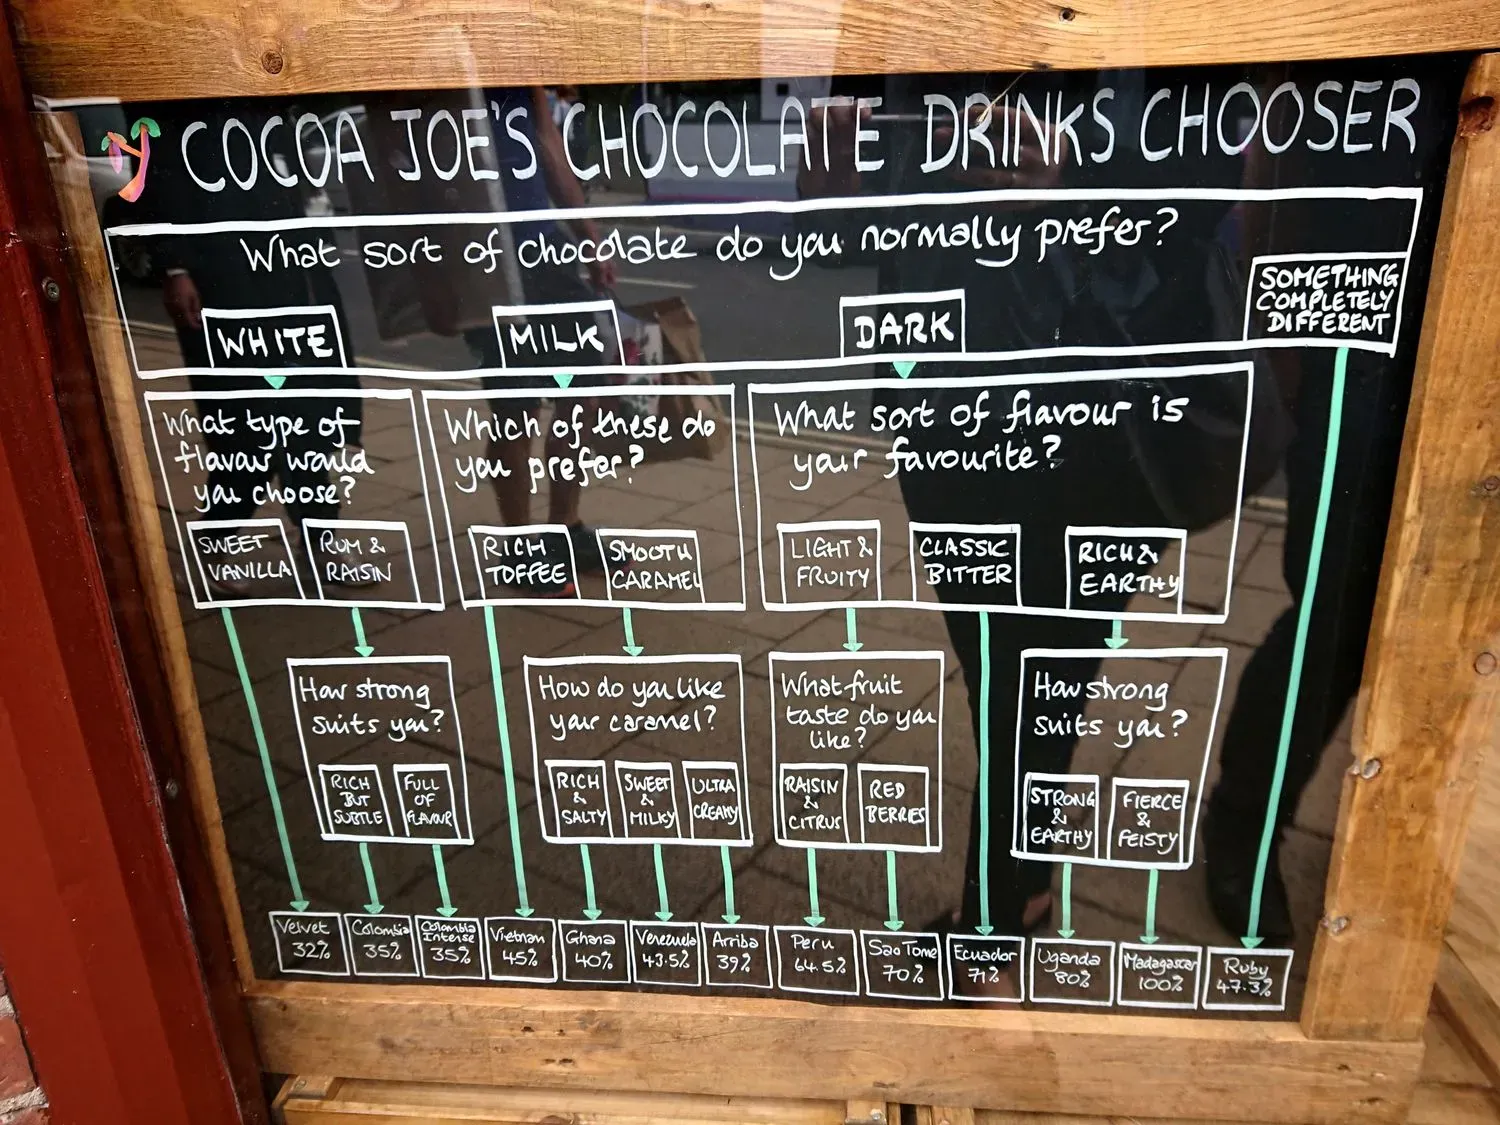 COCOA JOE'S CHOCOLATE DRINKS CHOOSER
What sort of chocolate do you normally prefer?
WHITE
MILK
DARK
SOMETHING
COMPLETELY
DIFFERENT
What type of
flavour would
you choose?
SWEET
VANILLA
RUM &
RAISIN
Which of these do
you prefer?
RICH
TOFFEE
SMOOTH
CARAMEL
What sort of flavour is
your favourite?
LIGHT &
FRUITY
CLASSIC
BITTER
RICH &
EARTHY
How strong
suits you?
RICH
BUT
SUBTLE
FULL
OF
FLAVOUR
How do you like
your caramel?
RICH
&
SALTY
SWEET
&
MILKY
ULTRA
CREAMY
What fruit
taste do you
like?
RAISIN
&
CITRUS
RED
BERRIES
How strong
suits you?
STRONG
&
EARTHY
FIERCE
&
FEISTY
Velvet
32%
Colombia
35%
Colombia
Intense
35%
Vietnam
45%
Ghana
40%
Venezuela
43.5%
Arriba
39%
Peru
64.5%
Sao Tome
70%
Ecuador
71%
Uganda
80%
Madagascar
100%
Ruby
47.3%